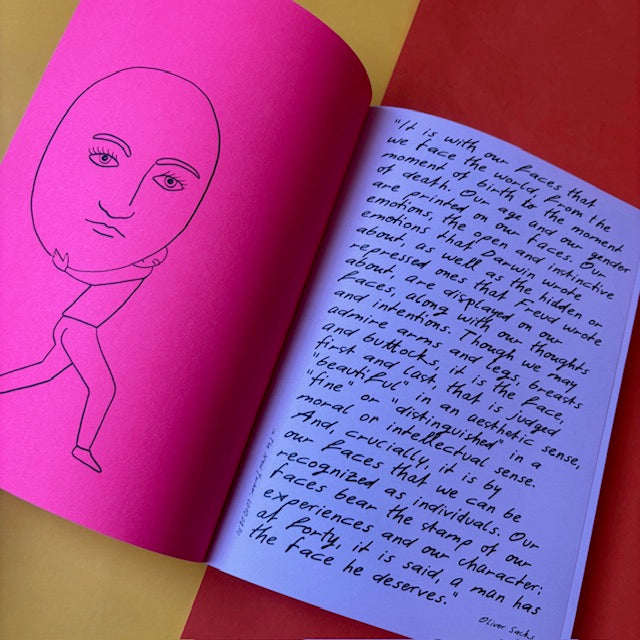 "It is with our faces that
we face the world, from the
moment of birth to the moment
of death. Our age and our gender
are printed on our faces. Our
emotions, the open and instinctive
emotions that Darwin wrote
about, as well as the hidden or
repressed ones that Freud wrote
about, are displayed on our
faces, along with our thoughts
and intentions. Though we may
admire arms and legs, breasts
and buttocks, it is the face,
first and last, that is judged
"beautiful" in an aesthetic sense,
"fine" or "distinguished" in a
moral or intellectual sense.
And, crucially, it is by
our faces that we can be
recognized as individuals. Our
faces bear the stamp of our
experiences and our character:
at forty, it is said, a man has
the face he deserves."
Oliver Sacks